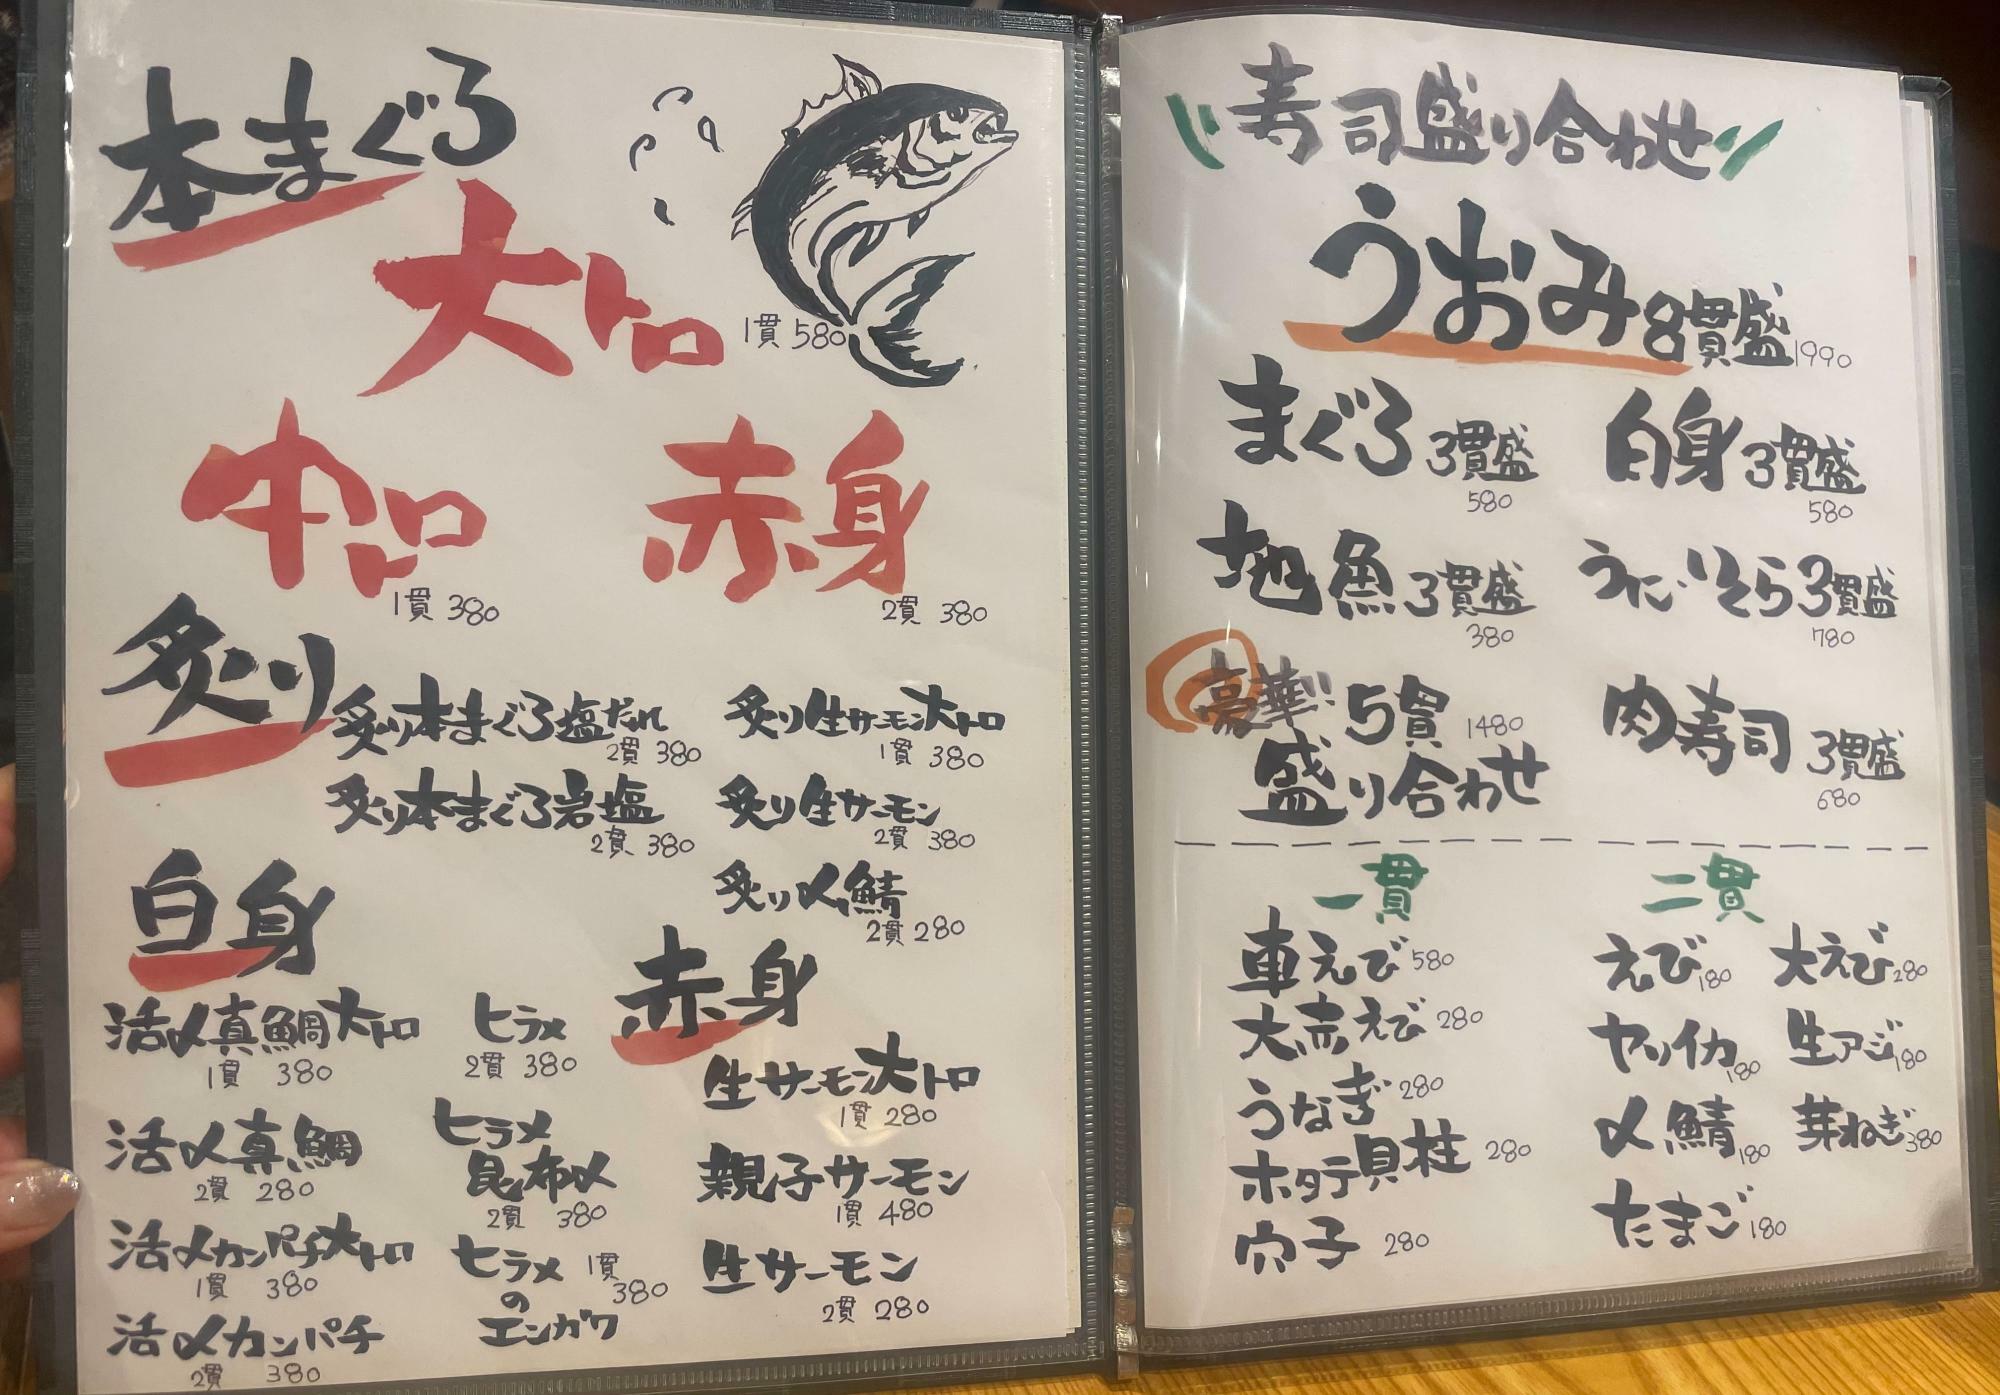 本まぐろ
大トロ
1貫 580
中トロ
1貫 380
赤身
2貫 380
炙り
炙り本まぐろ塩だれ
2貫 380
炙り本まぐろ岩塩
2貫 380
炙り生サーモン大トロ
1貫 380
炙り生サーモン
2貫 380
炙り〆鯖
2貫 280
白身
活〆真鯛大トロ
1貫 380
活〆真鯛
2貫 280
活〆カンパチ大トロ
1貫 380
活〆カンパチ
2貫 380
ヒラメ
2貫 380
ヒラメ
昆布〆
2貫 380
ヒラメ 1貫
の 380
エンガワ
赤身
生サーモン大トロ
1貫 280
親子サーモン
1貫 480
生サーモン
2貫 280
寿司盛り合わせ
うおみ8貫盛1990
まぐろ3貫盛
580
白身3貫盛
580
地魚3貫盛
380
うに・いくら3貫盛
780
豪華!! 5貫 1480
盛り合わせ
肉寿司 3貫盛
680
一貫
車えび580
大赤えび280
うなぎ280
ホタテ貝柱 280
穴子 280
二貫
えび180
大えび280
ヤリイカ180
生アジ180
〆鯖180
芽ねぎ380
たまご180